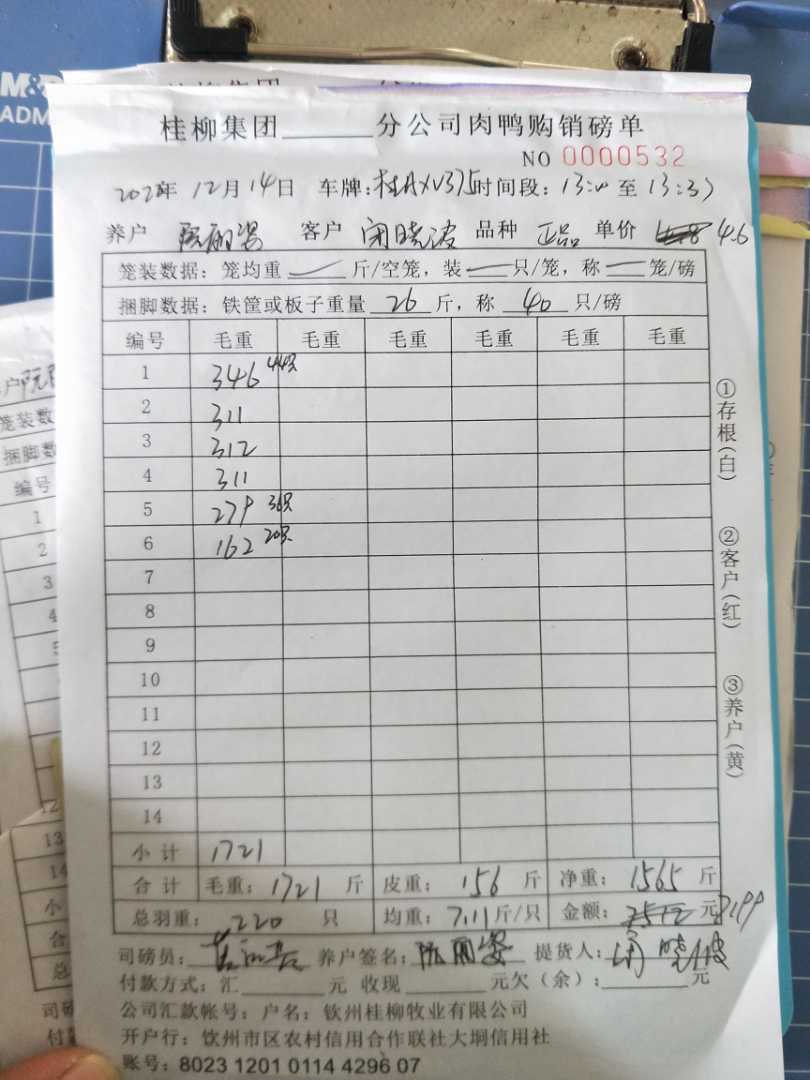 M&
ADM
桂柳集团______分公司肉鸭购销磅单
NO 0000532
202 年 12月14日 车牌:桂AXV375 时间段:13:00 至 13:37
养户 阮丽姿 客户 闭晓波 品种 正品 单价 4.6
笼装数据:笼均重 — 斤/空笼,装 — 只/笼,称 — 笼/磅
捆脚数据:铁筐或板子重量 26 斤,称 40 只/磅
编号 毛重 毛重 毛重 毛重 毛重 毛重
1 346 44只
2 311
3 312
4 311
5 279 36只
6 162 20只
7
8
9
10
11
12
13
14
小计 1721
合计 毛重:1721 斤 皮重:156 斤 净重:1565 斤
总羽重:220 只 均重:7.11斤/只 金额: 元 7199
司磅员: 养户签名:阮丽姿 提货人:闭晓波
付款方式:汇______元 收现______元欠(余):______元
公司汇款帐号:户名:钦州桂柳牧业有限公司
开户行:钦州市区农村信用合作联社大垌信用社
账号:8023 1201 0114 4296 07
①存根(白)
②客户(红)
③养户(黄)